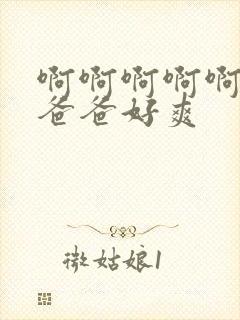 啊啊啊啊啊
爸爸好爽
微姑娘1